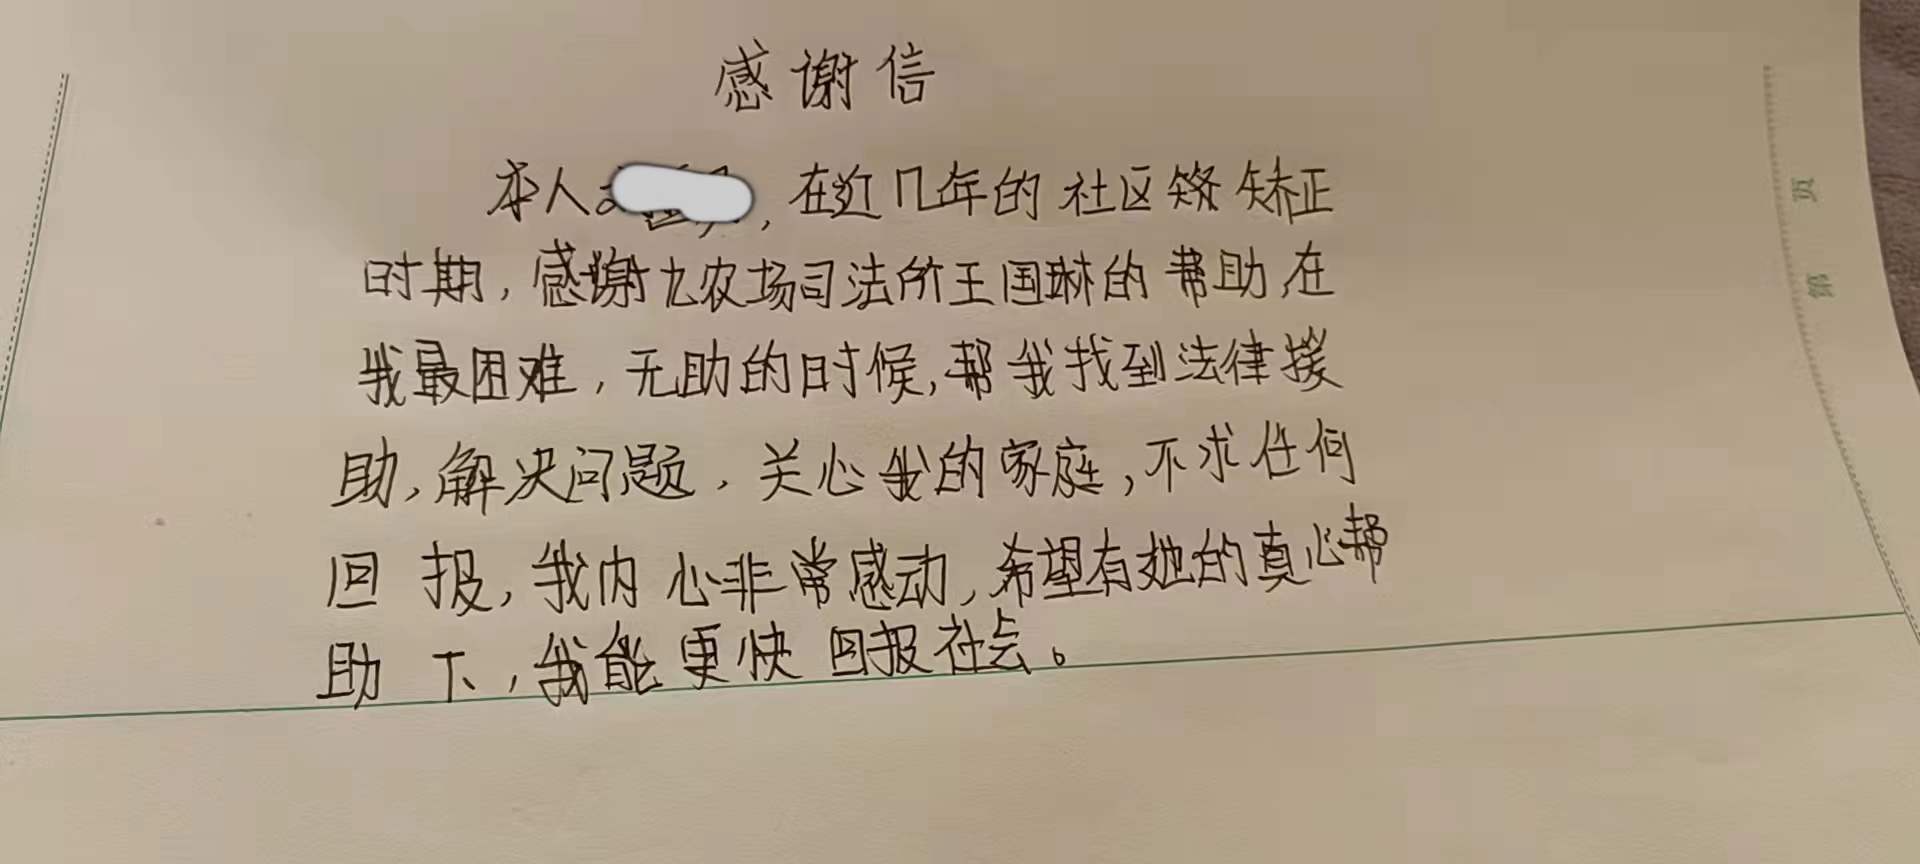 感谢信
本人，在近几年的社区矫正
时期，感谢九农场司法所王国琳的帮助，在
我最困难，无助的时候，帮我找到法律援
助，解决问题，关心我的家庭，不求任何
回报，我内心非常感动，希望有她的真心帮
助下，我能更快回报社会。
页
第